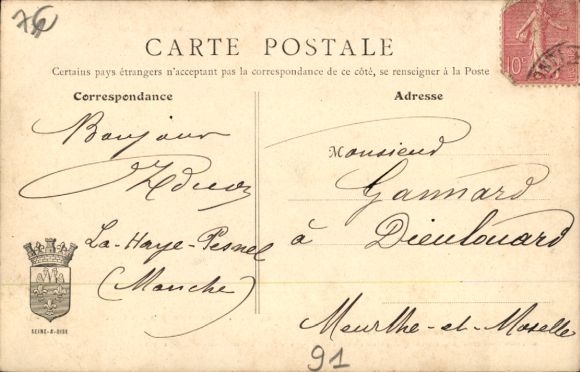 76
CARTE POSTALE
Certains pays étrangers n'acceptant pas la correspondance de ce côté, se renseigner à la Poste
10c
Correspondance
Bonjour
La-Haye-Pesnel
(Manche)
SEINE-&-OISE
Adresse
Monsieur
Gannard
à Dieulouard
Meurthe-et-Moselle
91